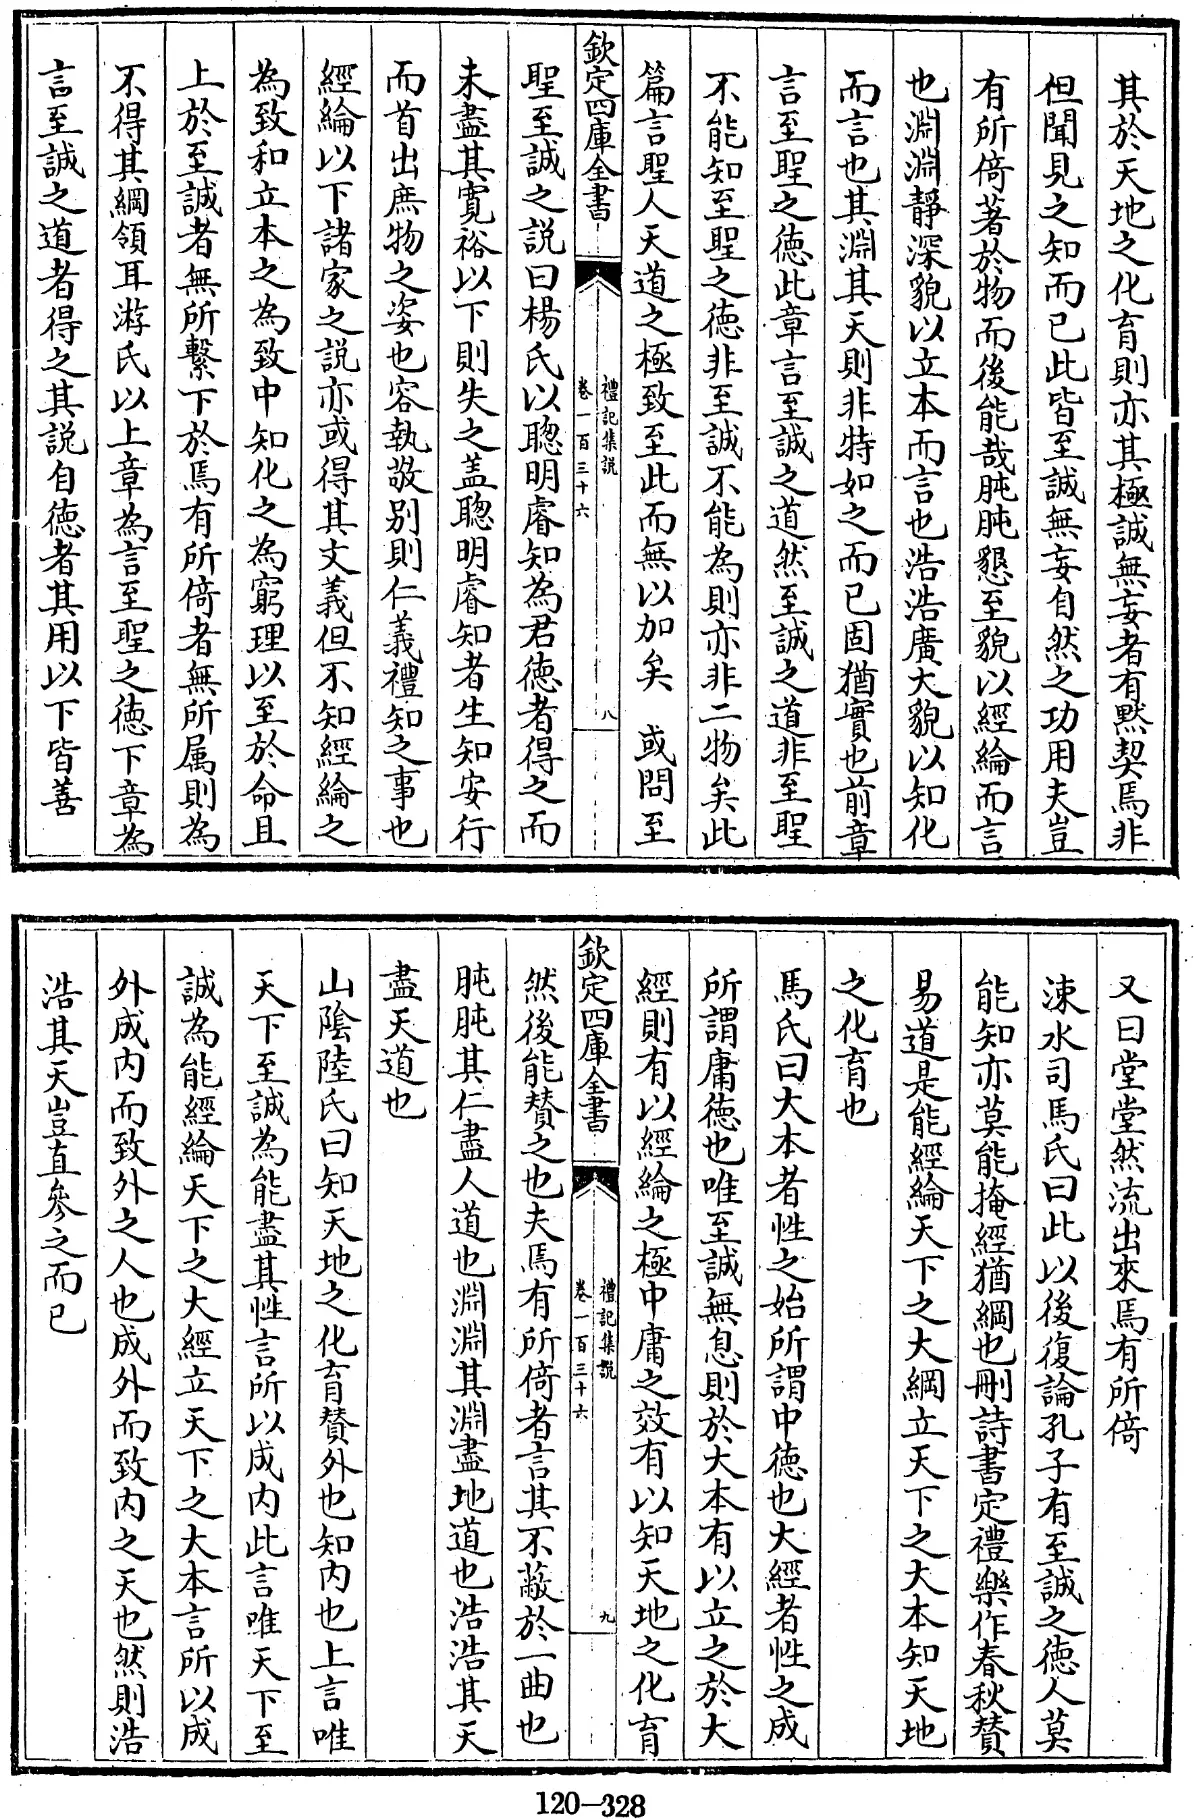 其於天地之化育則亦其極誠無妄者有黙契焉非
但聞見之知而已此皆至誠無妄自然之功用夫豈
有所倚著於物而後能哉肫肫懇至貌以經綸而言
也淵淵靜深貌以立本而言也浩浩廣大貌以知化
而言也其淵其天則非特如之而已固猶實也前章
言至聖之徳此章言至誠之道然至誠之道非至聖
不能知至聖之徳非至誠不能為則亦非二物矣此
篇言聖人天道之極致至此而無以加矣　或問至
欽定四庫全書
禮記集說
卷一百三十六
八
聖至誠之説曰楊氏以聰明睿知為君徳者得之而
未盡其寛裕以下則失之盖聰明睿知者生知安行
而首出庶物之姿也容執敬别則仁義禮知之事也
經綸以下諸家之説亦或得其文義但不知經綸之
為致和立本之為致中知化之為窮理以至於命且
上於至誠者無所繫下於焉有所倚者無所属則為
不得其綱領耳游氏以上章為言至聖之徳下章為
言至誠之道者得之其説自徳者其用以下皆善
又曰堂堂然流出來焉有所倚
涑水司馬氏曰此以後復論孔子有至誠之徳人莫
能知亦莫能掩經猶綱也刪詩書定禮樂作春秋賛
易道是能經綸天下之大綱立天下之大本知天地
之化育也
馬氏曰大本者性之始所謂中徳也大經者性之成
所謂庸徳也唯至誠無息則於大本有以立之於大
經則有以經綸之極中庸之效有以知天地之化育
欽定四庫全書
禮記集說
卷一百三十六
九
然後能賛之也夫焉有所倚者言其不蔽於一曲也
肫肫其仁盡人道也淵淵其淵盡地道也浩浩其天
盡天道也
山隂陸氏曰知天地之化育賛外也知内也上言唯
天下至誠為能盡其性言所以成内此言唯天下至
誠為能經綸天下之大經立天下之大本言所以成
外成内而致外之人也成外而致内之天也然則浩
浩其天豈直參之而已
120—328